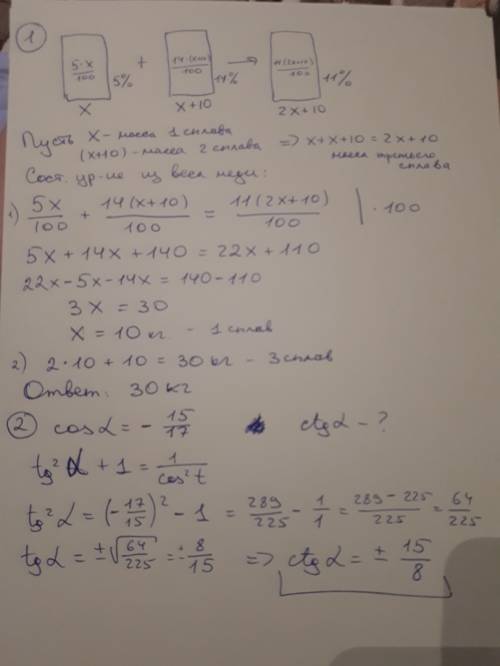 1
5·x/100 5% + 14·(x+10)/100 14% → 11(2x+10)/100 11%
x x+10 2x+10
Пусть x - масса 1 сплава
(x+10) - масса 2 сплава => x+x+10 = 2x+10
масса третьего
сплава
Сост. ур-ие из всей меди:
1) 5x/100 + 14(x+10)/100 = 11(2x+10)/100 | ·100
5x + 14x + 140 = 22x + 110
22x - 5x - 14x = 140 - 110
3x = 30
x = 10 кг - 1 сплав
2) 2·10 + 10 = 30 кг - 3 сплав
Ответ: 30 кг
2 cosα = - 15/17 ctgα - ?
tg²α + 1 = 1/cos²t
tg²α = (-17/15)² - 1 = 289/225 - 1/1 = 289-225/225 = 64/225
tgα = ±√64/225 = ± 8/15 => ctgα = ± 15/8